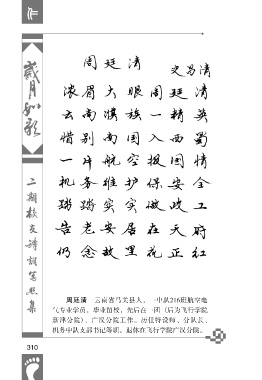 岁月如歌
周廷清
浓眉大眼周廷清
云南满族一精英
惜别南国入西蜀
一片航空报国情
机务维护保安全
踏踏实实做政工
告老安居在天府
仍念故里花正红
周廷清 云南省马关县人，一中队216班航空电
气专业学员，毕业留校，先后在一团（后为飞行学院
新津分院）、广汉分院工作。历任特设师、分队长、
机务中队支部书记等职。退休在飞行学院广汉分院。
310